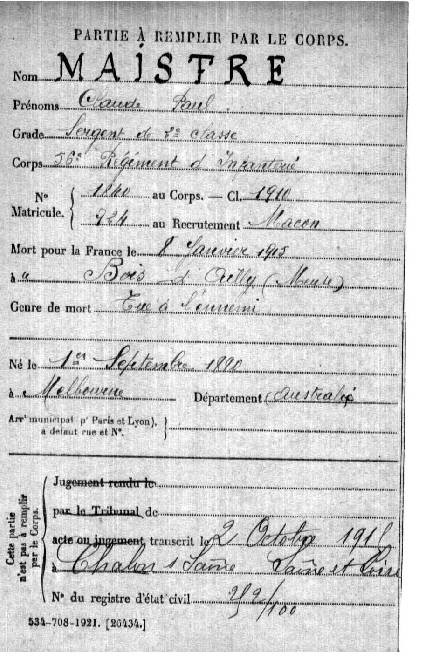 PARTIE À REMPLIR PAR LE CORPS.
Nom MAISTRE
Prénoms Claude Paul.
Grade Sergent de 2e classe
Corps 56e Régiment d'Infanterie
N° Matricule. { 1840 au Corps. — Cl. 1910
924 au Recrutement Macon
Mort pour la France le 8 Janvier 1915
à Bois d'Ailly (Meuse)
Genre de mort Tué à l'ennemi
Né le 1er Septembre 1890
à Melbourne Département (Australie
Arrt municipal (pr Paris et Lyon), à défaut rue et N°. }
Cette partie n'est pas à remplir par le Corps.
Jugement rendu le
par le Tribunal de
acte ou jugement transcrit le 2 Octobre 191
à Chalon s Saône Saône et Loire
N° du registre d'état civil /100
534-708-1921. [26434.]